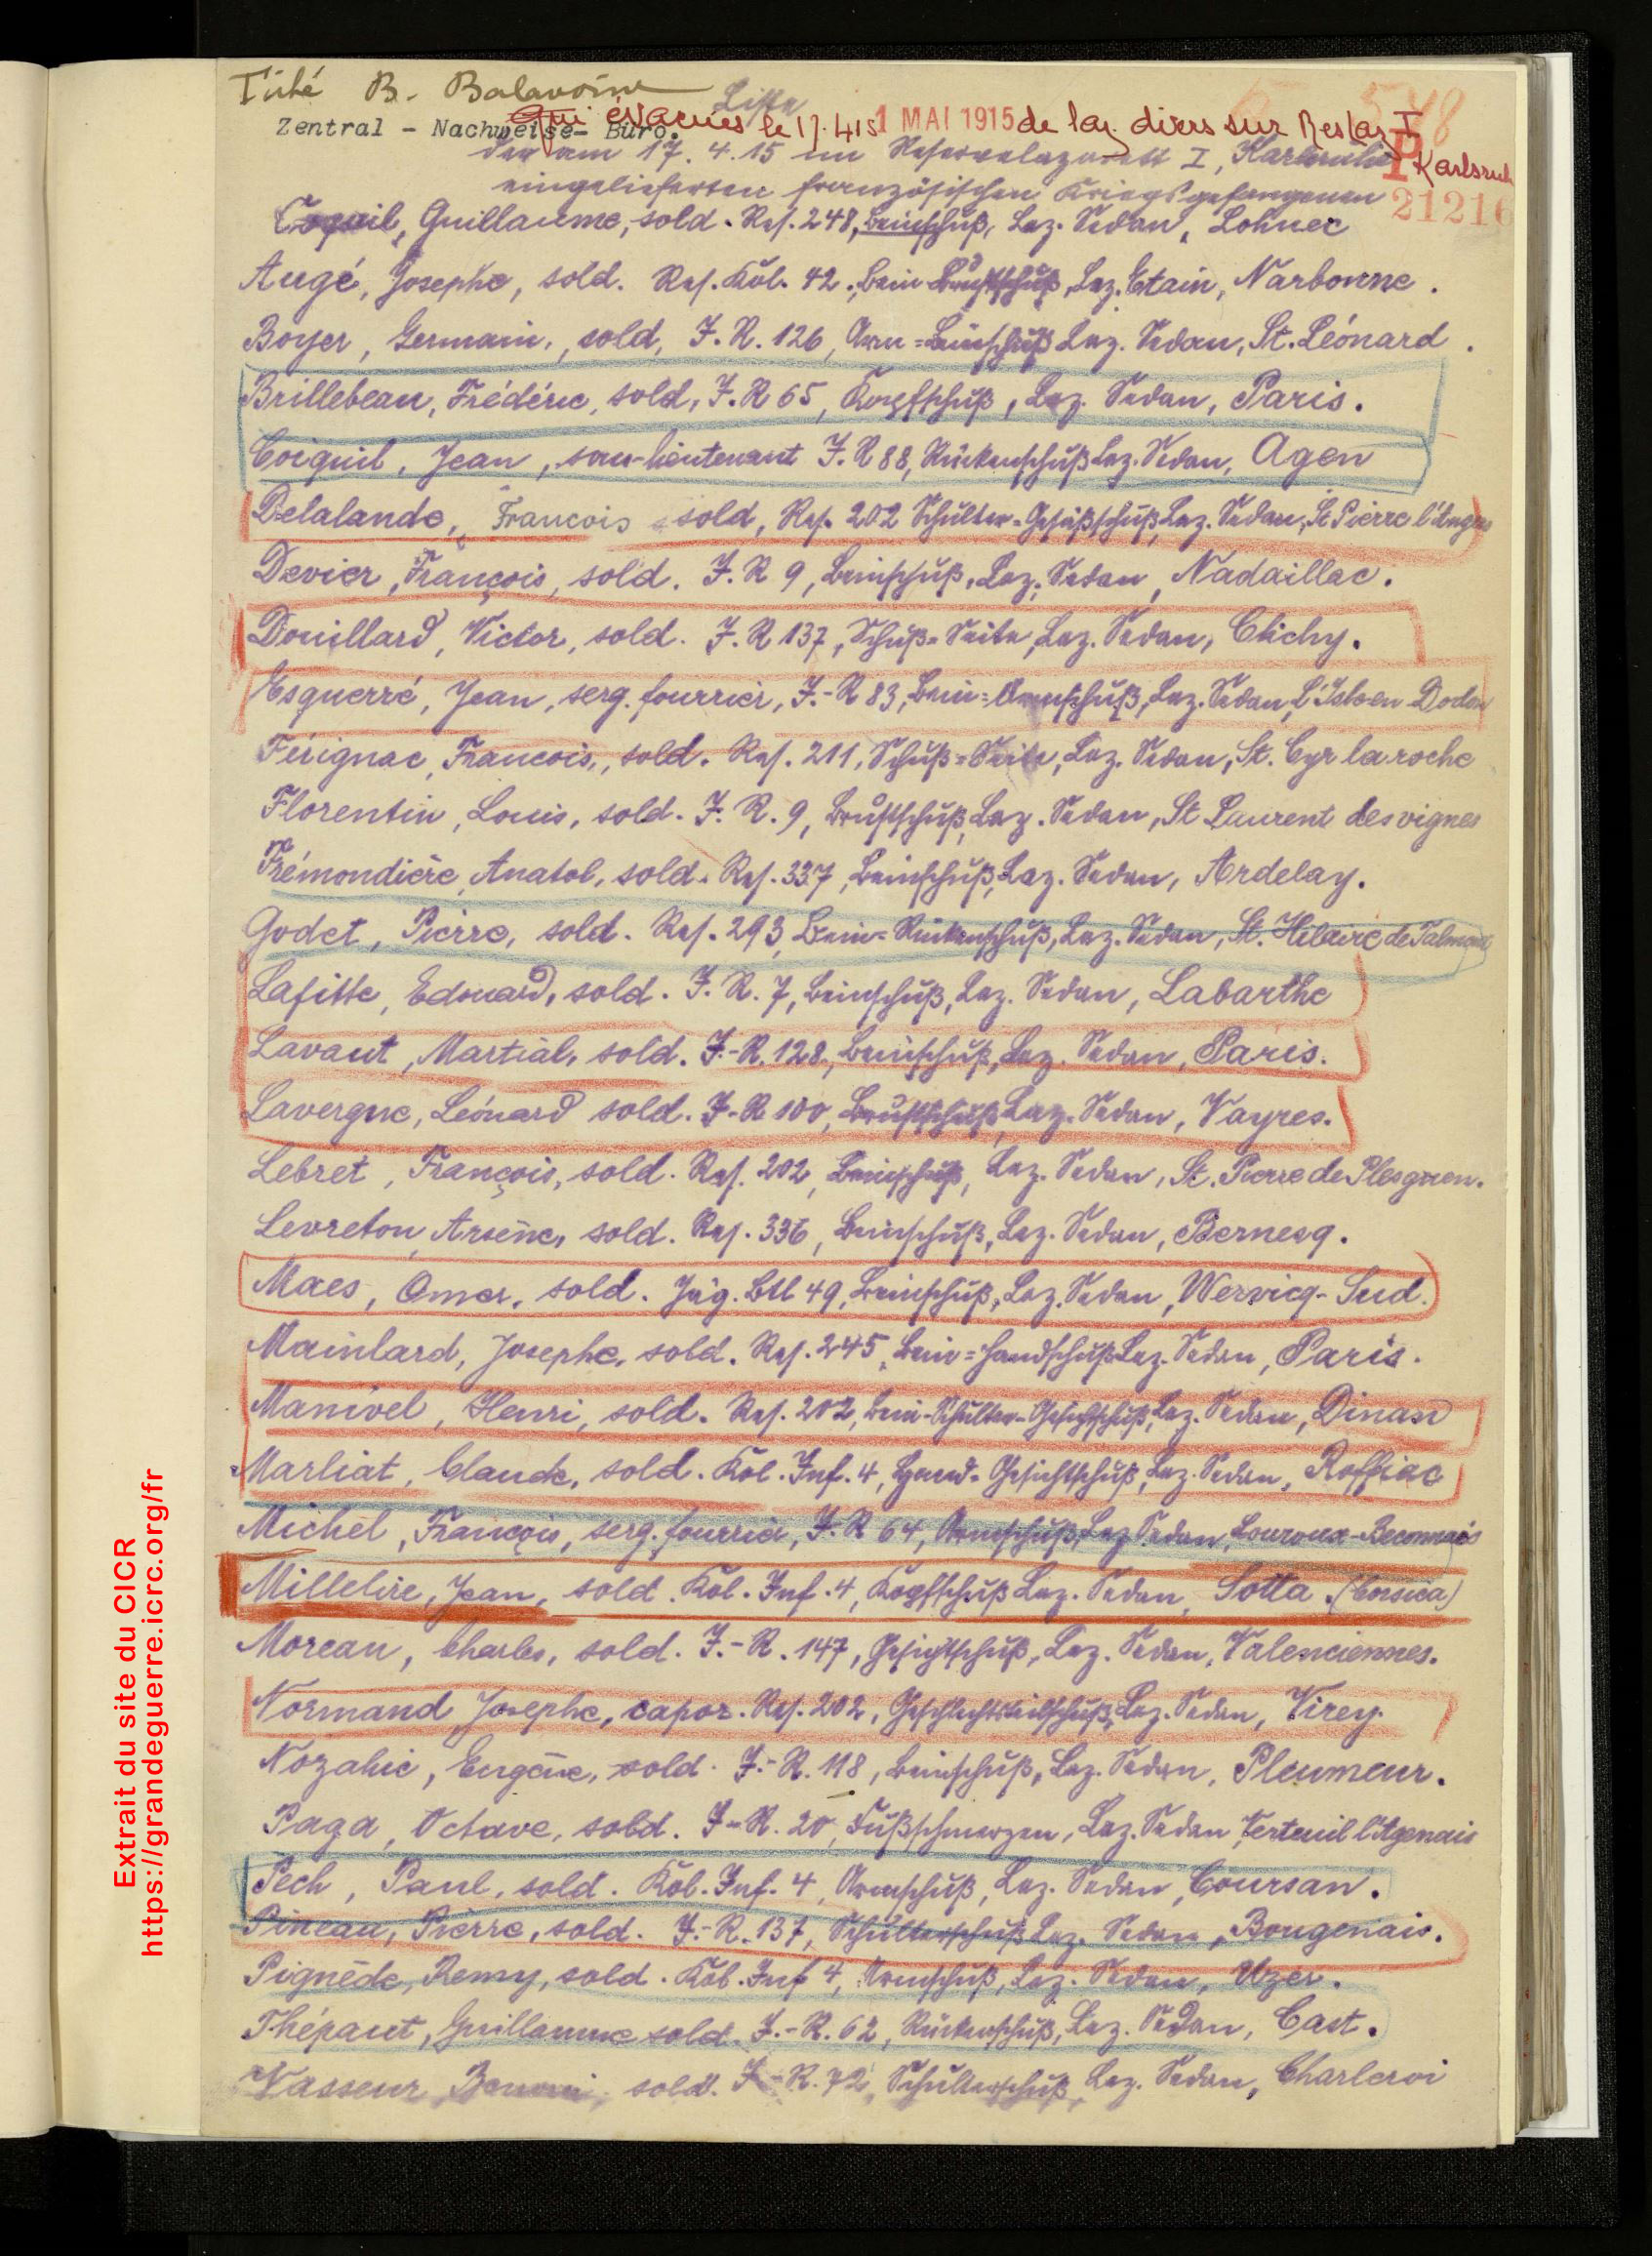 B. Balavoine
Liste
Zentral - Nachweise- Büro.
évacués le 17.4.15 1 MAI 1915 de laz. divers sur Res Laz I Karlsruh
P 21216
der am 17.4.15 im Reservelazarett I, Karlsruhe
eingelieferten französischen Kriegsgefangenen
Guillaume, sold. Res. 248, Beinschuß, Laz. Sedan, Lohuec
Augé, Josephe, sold. Res. Kol. 42, Bein- Brustschuß, Laz. Etain, Narbonne.
Boyer, Germain, sold, J. R. 126, Arm=Beinschuß Laz. Sedan, St. Léonard.
Brillebeau, Frédéric, sold, J. R 65, Kopfschuß, Laz. Sedan, Paris.
Coiquil, Jean, sous-lieutenant J. R 88, Rückenschuß Laz. Sedan, Agen
Delalande, Francois sold, Res. 202 Schulter-Gesäßschuß, Laz. Sedan, St Pierre
Devier, François, sold. J. R 9, Beinschuß, Laz. Sedan, Nadaillac.
Douillard, Victor, sold. J. R 137, Schuß=Seite, Laz. Sedan, Clichy.
Esquerré, Jean, serg. fourrier, J.-R 83, Bein=Armschuß, Laz. Sedan, L'Isle en Dodon
Férignac, Francois, sold. Res. 211, Schuß=Seite, Laz. Sedan, St. Cyr la roche
Florentin, Louis, sold. J. R. 9, Brustschuß, Laz. Sedan, St Laurent des vignes
Frémondière, Anatol, sold. Res. 337, Beinschuß, Laz. Sedan, Ardelay.
Godet, Pierre, sold. Res. 293, Bein=Rückenschuß, Laz. Sedan, St. Hilaire de Talmont
Lafitte, Edouard, sold. J. R. 7, Beinschuß, Laz. Sedan, Labarthe
Lavaut, Martial, sold. J.-R. 128, Beinschuß, Laz. Sedan, Paris.
Lavergne, Léonard sold. J.-R 100, Brustschuß Laz. Sedan, Vayres.
Lebret, François, sold. Res. 202, Beinschuß, Laz. Sedan, St. Pierre de Plesguen.
Levreton, Arsène, sold. Res. 336, Beinschuß, Laz. Sedan, Bernesq.
Maes, Omer, sold. Jäg. Btl 49, Beinschuß, Laz. Sedan, Wervicq-Sud.
Mainlard, Josephe, sold. Res. 245, Bein=Handschuß Laz. Sedan, Paris.
Manivel, Henri, sold. Res. 202, Bein-Schulter-Gesichtschuß, Laz. Sedan, Dinan
Marliat, Claude, sold. Kol. Inf. 4, Hand-Gesichtschuß, Laz. Sedan, Roffiac
Michel, François, serg. fourrier, J. R 64, Armschuß, Laz Sedan, Louroux-Beconnais
Millelire, Jean, sold. Kol. Inf. 4, Kopfschuß Laz. Sedan, Sotta. (Corsica)
Moreau, Charles, sold. J.-R. 147, Gesichtschuß, Laz. Sedan, Valenciennes.
Normand Josephe, capor. Res. 202, Geschlechtsteilschuß, Laz. Sedan, Virey.
Nozahic, Eugène, sold. J.-R. 118, Beinschuß, Laz. Sedan, Pleumeur.
Paga, Octave, sold. J.-R. 20, Fußschmerzen, Laz. Sedan, Verteuil l'Agenais
Pech, Paul, sold. Kol. Inf. 4, Armschuß, Laz. Sedan, Coursan.
Pineau, Pierre, sold. J.-R. 137, Schulterschuß Laz. Sedan, Bougenais.
Pignède, Remy, sold. Kol. Inf 4, Armschuß, Laz. Sedan, Uzer.
Thépaut, Guillaume sold. J.-R. 62, Rückenschuß, Laz. Sedan, Cast.
Vasseur sold. J.-R. 72, Schulterschuß, Laz. Sedan, Charleroi
Extrait du site du CICR
https://grandeguerre.icrc.org/fr